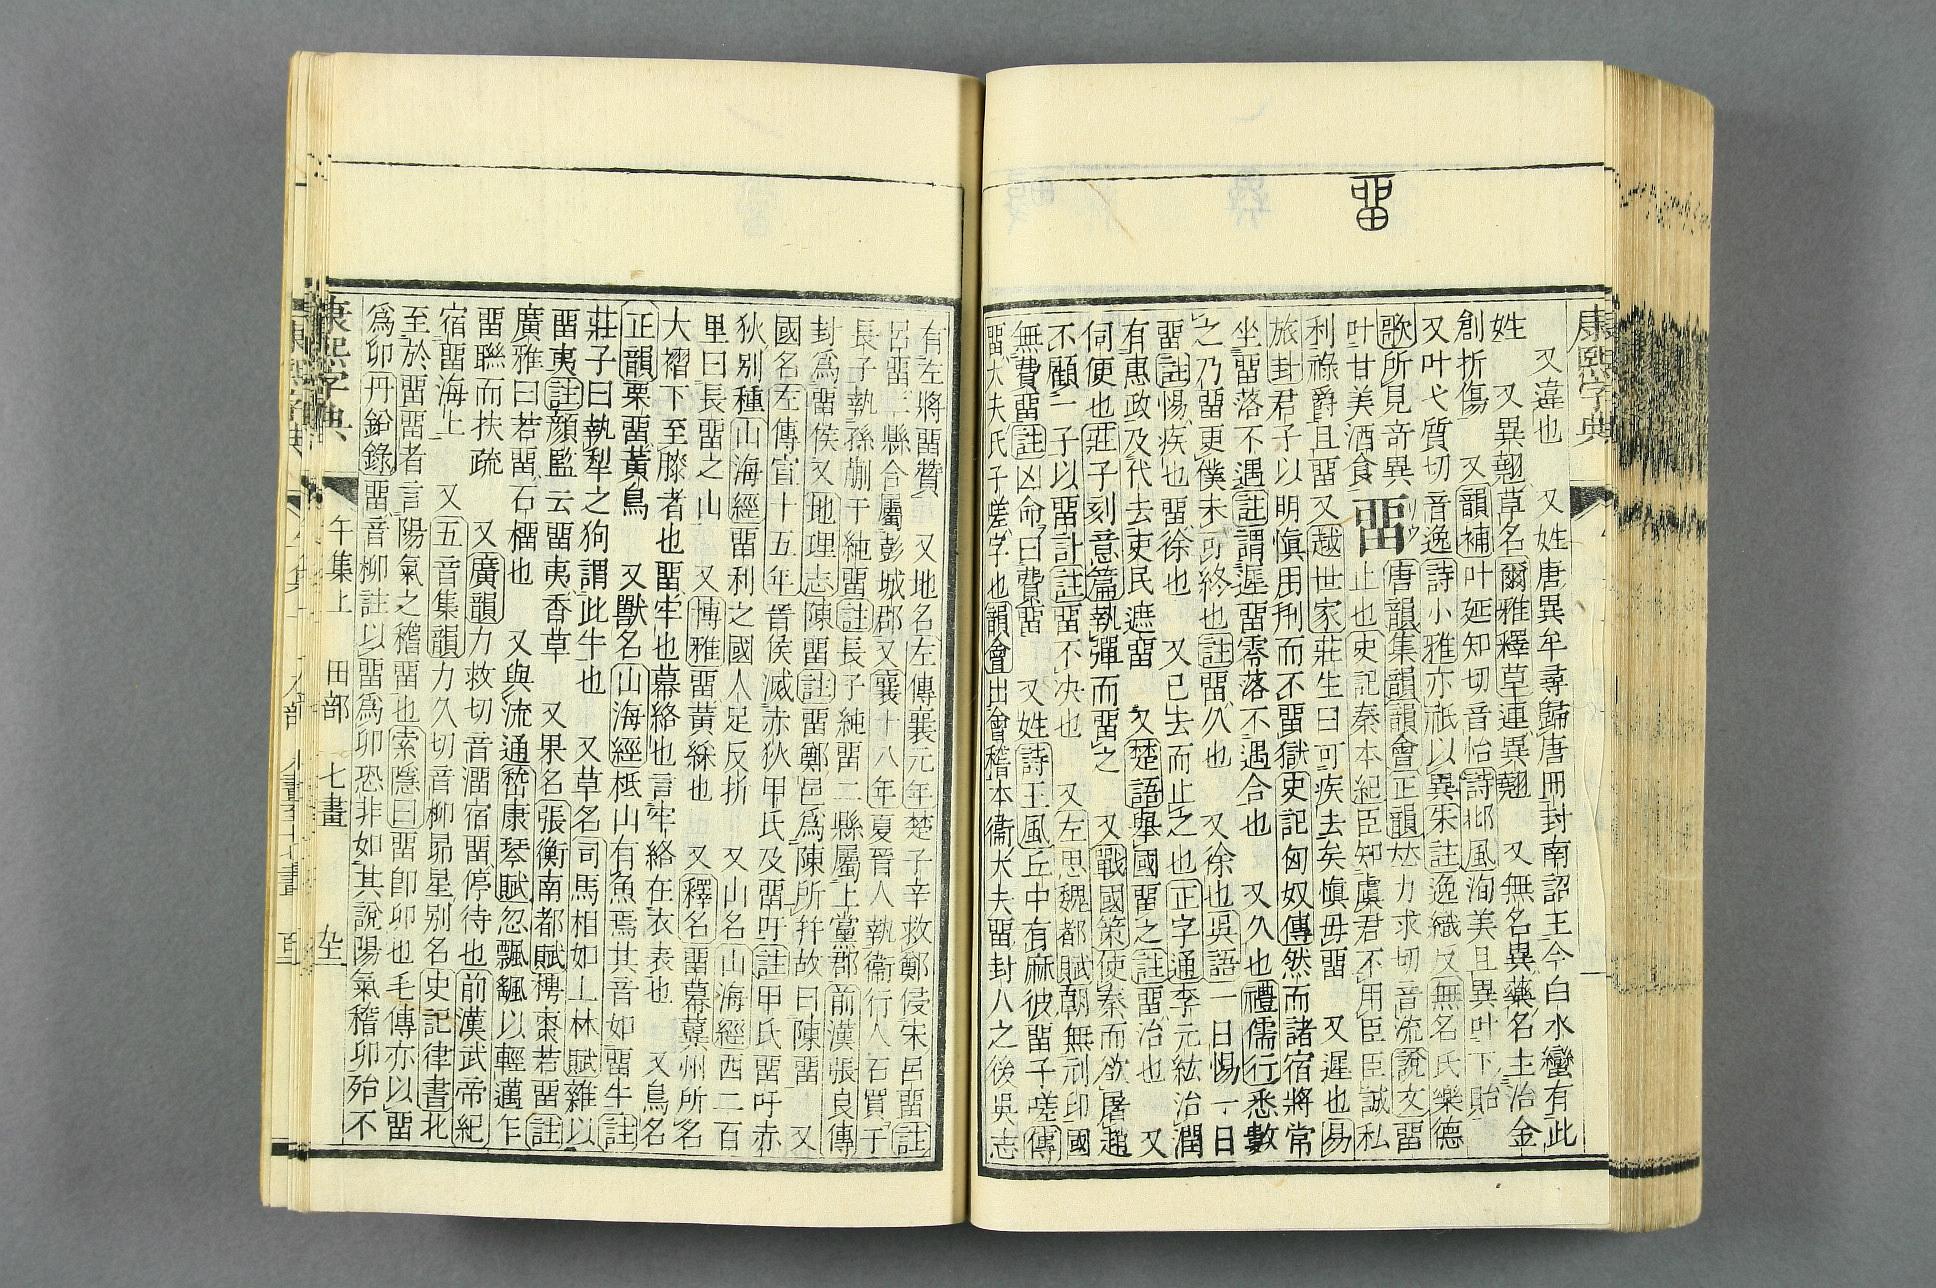 畱
康熙字典
又違也　又姓唐異牟尋歸唐冊封南詔王今白水蠻有此
姓　又異翹草名爾雅釋草連異翹　又無名異藥名主治金
創折傷　又韻補叶延知切音怡詩邶風洵美且異叶下貽
又叶弋質切音逸詩小雅亦祇以異朱註逸織反無名氏樂德
歌所見奇異
叶甘美酒食
畱
唐韻集韻韻會正韻𠀤力求切音流說文畱
止也史記秦本紀臣知虞君不用臣臣誠私
利祿爵且畱　又越世家莊生曰可疾去矣愼毋畱　又遲也易
旅封君子以明愼用刑而不畱獄史記匈奴傳然而諸宿將常
坐畱落不遇註謂遲畱零落不遇合也　又久也禮儒行悉數
之乃畱更僕未可終也註畱久也　又徐也吳語一日惕一日
畱註惕疾也畱徐也　又已去而止之也正字通李元紘治潤
有惠政及代去吏民遮畱　又楚語舉國畱之註畱治也　又
伺便也莊子刻意篇執彈而畱之　又戰國策使秦而欲屠趙
不顧一子以畱計註畱不決也　又左思魏都賦朝無刓印國
無費畱註凶命曰費畱　又姓詩王風丘中有麻彼畱子嗟傳
畱大夫氏子嗟字也韻會出會稽本衞大夫畱封人之後吳志
有左將畱贊　又地名左傳襄元年楚子辛救鄭侵宋呂畱註
呂畱二縣今屬彭城郡又襄十八年夏晉人執衞行人石買于
長子執孫蒯于純畱註長子純畱二縣屬上黨郡前漢張良傳
封爲畱侯又地理志陳畱註畱鄭邑爲陳所幷故曰陳畱　又
國名左傳宣十五年晉侯滅赤狄甲氏及畱吁註甲氏畱吁赤
狄別種山海經畱利之國人足反折　又山名山海經西二百
里曰長畱之山　又博雅畱黃綵也　又釋名畱幕冀州所名
大褶下至膝者也畱牢也幕絡也言牢絡在衣表也　又鳥名
正韻栗畱黃鳥　又獸名山海經柢山有魚焉其音如畱牛註
莊子曰執犁之狗謂此牛也　又草名司馬相如上林賦雜以
畱夷註顏監云畱夷香草　又果名張衡南都賦樗棗若畱註
廣雅曰若畱石橊也　又與流通嵆康琴賦忽飄颻以輕邁乍
畱聯而扶疏　又廣韻力救切音溜宿畱停待也前漢武帝紀
宿畱海上　又五音集韻力久切音柳昴星別名史記律書北
至於畱畱者言陽氣之稽畱也索隱曰畱卽卯也毛傳亦以畱
爲卯丹鉛錄畱音柳註以畱爲卯恐非如其說陽氣稽卯殆不
康熙字典　午集上　田部　七畫